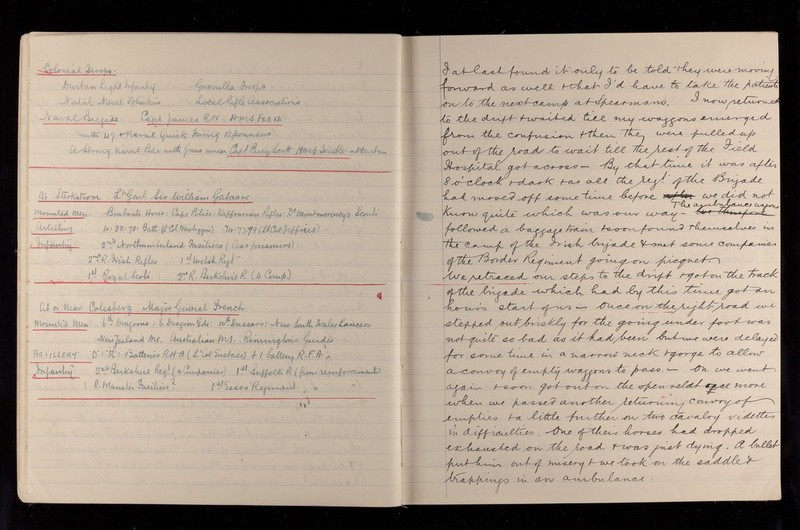 Colonial Troops.
Durban Light Infantry Guerrilla Troops
Natal Naval Volunteers Local Rifle Associations
Naval Brigade Capt James R.N. HMS Forte
with 4.7 & Naval Quick Firing 12 pounders
A strong Naval Bde with Guns under Capt Percy Scott HMS Terrible at Durban
At Sterkstrom Lt Genl Sir William Gatacre
Mounted Men. Brabants Horse: Cape Police: Kaffrarian Rifles: De Montmorency's Scouts
Artillery
Infantry 2nd Northumberland Fusiliers (less prisoners)
2nd R. Irish Rifles 1st Welsh Regt
1st Royal Scots 2nd R. Berkshire R (4 Comp.)
At or Near Colesberg Major General French
Mounted Men: 6th Dragoons: 10th Hussars: New South Wales Lancers
New Zealand M.I. Australian M.I. Rimingtons Guides
Artillery: "O": "R": Batteries R.H.A & 1 Battery R.F.A.
Infantry 2nd Berkshire Regt (4 Companies) 1st Suffolk R (from reinforcements)
1 R. Munster Fusiliers 1st Essex Regiment
I at last found it only to be told they were moving
forward as well & that I'd have to take the patients
on to the next camp at Spearmans. I now returned
to the drift & waited till my waggons emerged
from the confusion & then they were pulled up
out of the road to wait till the rest of the Field
Hospital got across – By that time it was after
8 o'clock & dark & as all the regts of the Brigade
had moved off some time before we did not
know quite which was our way – The ambulance waggons
followed a baggage train & soon found themselves in
the camp of the Irish brigade & met some companies
of the Border Regiment going on picquet –
We retraced our steps to the drift & got on the track
of the brigade which had by this time got an
hours start of us – Once on the right road we
stepped out briskly for the going under foot was
not quite so bad as it had been but we were delayed
for some time in a narrow neck & gorge to allow
a convoy of empty waggons to pass. – On we went
again & soon got out on the open veldt once more
when we passed another returning convoy of
empties & a little further on two cavalry videttes
in difficulties. One of their horses had dropped
exhausted on the road & was just dying. A bullet
put him out of misery & we took on the saddle &
trappings in an ambulance.